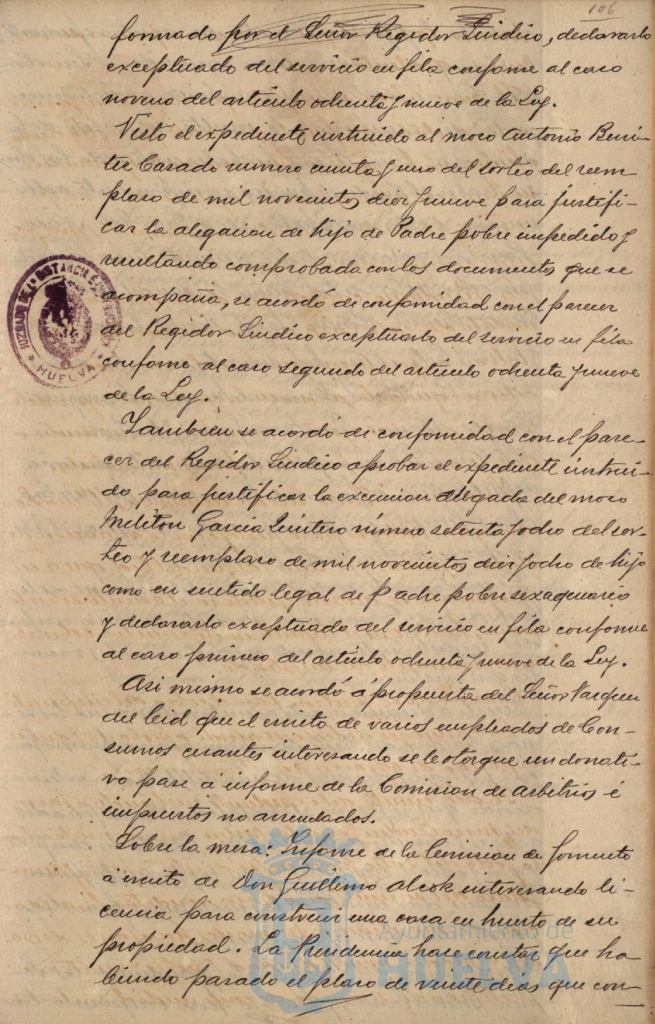 106
formado por el Señor Regidor Sindico, declararlo
exceptuado del servicio en fila conforme al caso
noveno del artículo ochenta y nueve de la Ley.
Visto el expediente instruido al mozo Antonio Beni-
tez Casado número treinta y uno del sorteo del reem-
plazo de mil novecientos diez y nueve para justifi-
car la alegacion de hijo de Padre pobre impedido y
resultando comprobada con los documentos que se
acompaña, se acordó de conformidad con el parecer
del Regidor Sindico exceptuarlo del servicio en fila
conforme al caso segundo del artículo ochenta y nueve
de la Ley.
Tambien se acordó de conformidad con el pare-
cer del Regidor Sindico aprobar el expediente instrui-
do para justificar la excencion alegada del mozo
Meliton Garcia Quintero número setenta y ocho del sor-
teo y reemplazo de mil novecientos diez y ocho de hijo
como en sentido legal de Padre pobre sexagenario
y declararlo exceptuado del servicio en fila conforme
al caso primero del artículo ochenta y nueve de la Ley.
Asi mismo se acordó á propuesta del Señor Vazquez
del Cid que el escrito de varios empleados de Con-
sumos cesantes interesando se le otorgue un donati-
vo pase á informe de la Comision de Arbitrios é
impuestos no arrendados.
Sobre la mesa: Informe de la Comision de Fomento
á escrito de Don Guillermo Alcok interesando li-
cencia para construir una casa en huerto de su
propiedad. La Presidencia hace constar que ha-
biendo pasado el plazo de veinte dias que con-
JUZGADO DE 1ª INSTANCIA
HUELVA
Ayuntamiento de
HUELVA